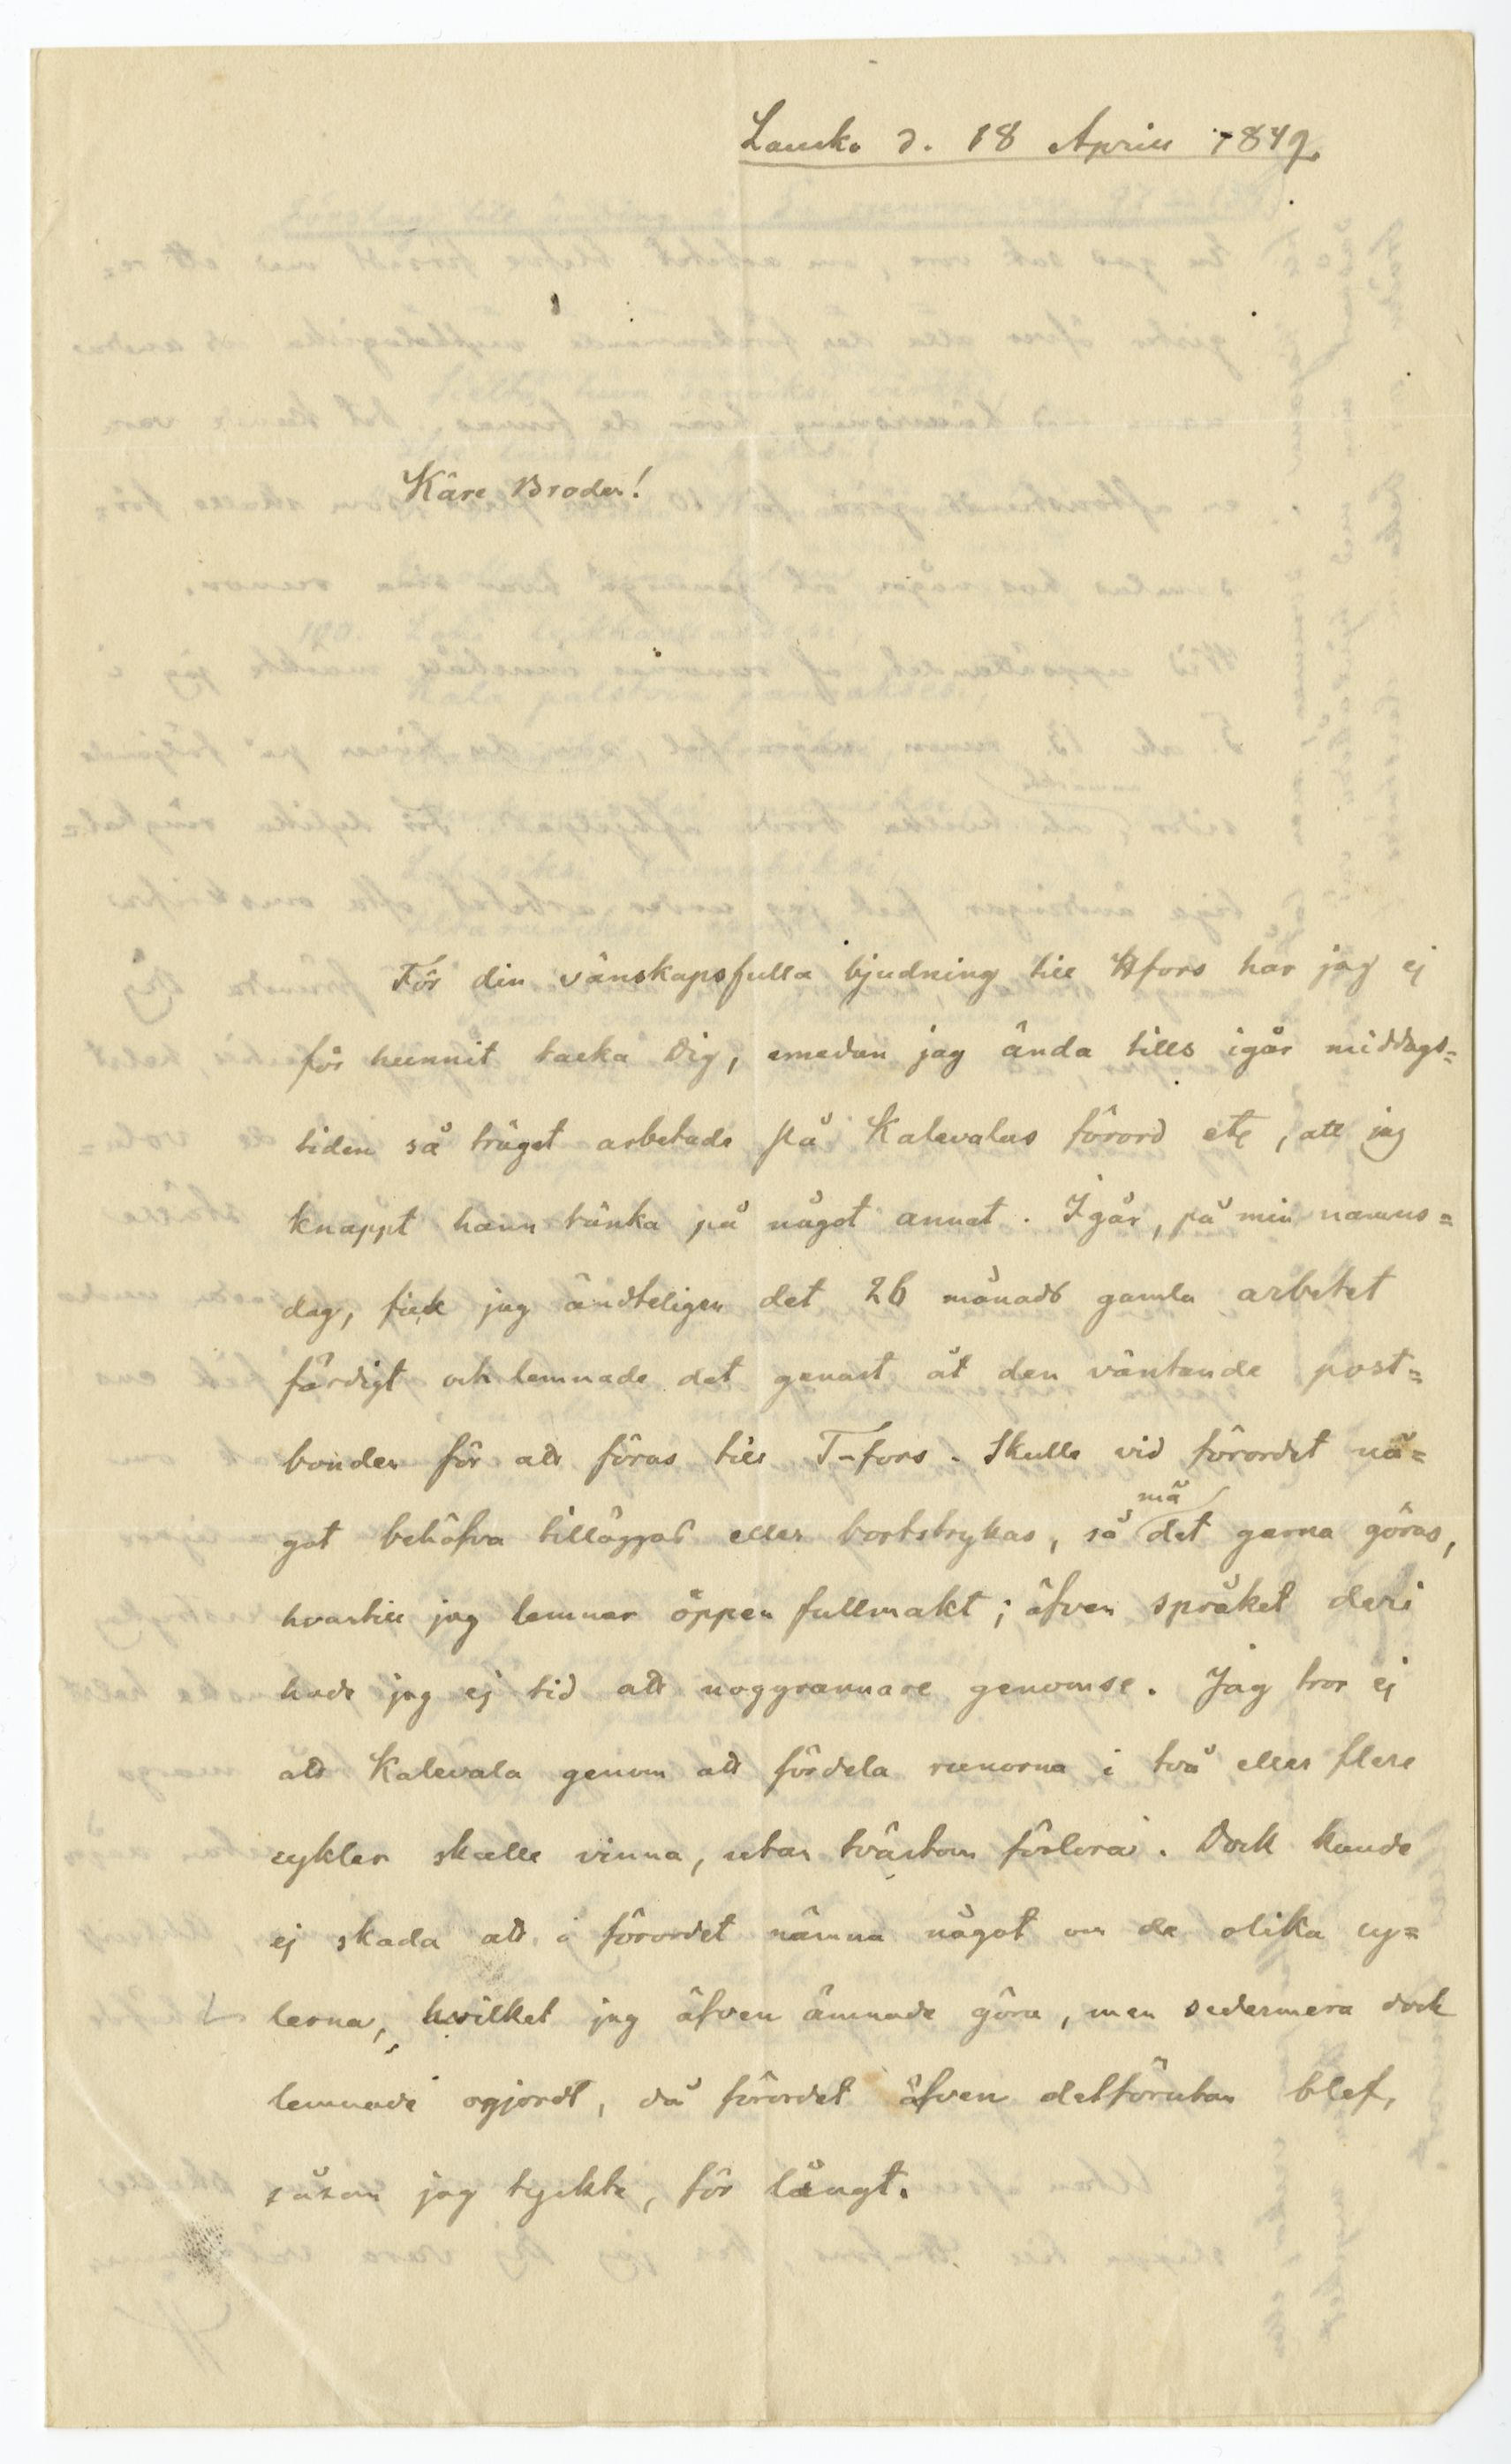 Lauko d. 18 April 1849.
Käre Broder!
För din vänskapsfulla bjudning till Hfors har jag ej
för hunnit tacka Dig, emedan jag ända tills igår middags=
tiden så träget arbetade på Kalevalas förord etc, att jag
knappt hann tänka på något annat. Igår, på min namns=
dag, fick jag ändteligen det 26 månads gamla arbetet
färdigt och lemnade det genast åt den väntande post=
bonden för att föras till T-fors. Skulle vid förordet nå=
got behöfva tilläggas eller bortstrykas, så må det gerna göras,
hvartill jag lemnar öppen fullmakt; äfven språket deri
hade jag ej tid att noggrannare genomse. Jag tror ej
att Kalevala genom att fördela runorna i två eller flere
cykler skulle vinna, utan tvärtom förlora. Dock kunde
ej skada att i förordet nämna något om de olika cy=
lerna, hvilket jag äfven ämnade göra, men sedermera dock
lemnade ogjordt, då förordet äfven detförutan blef,
såsom jag tyckte, för långt.